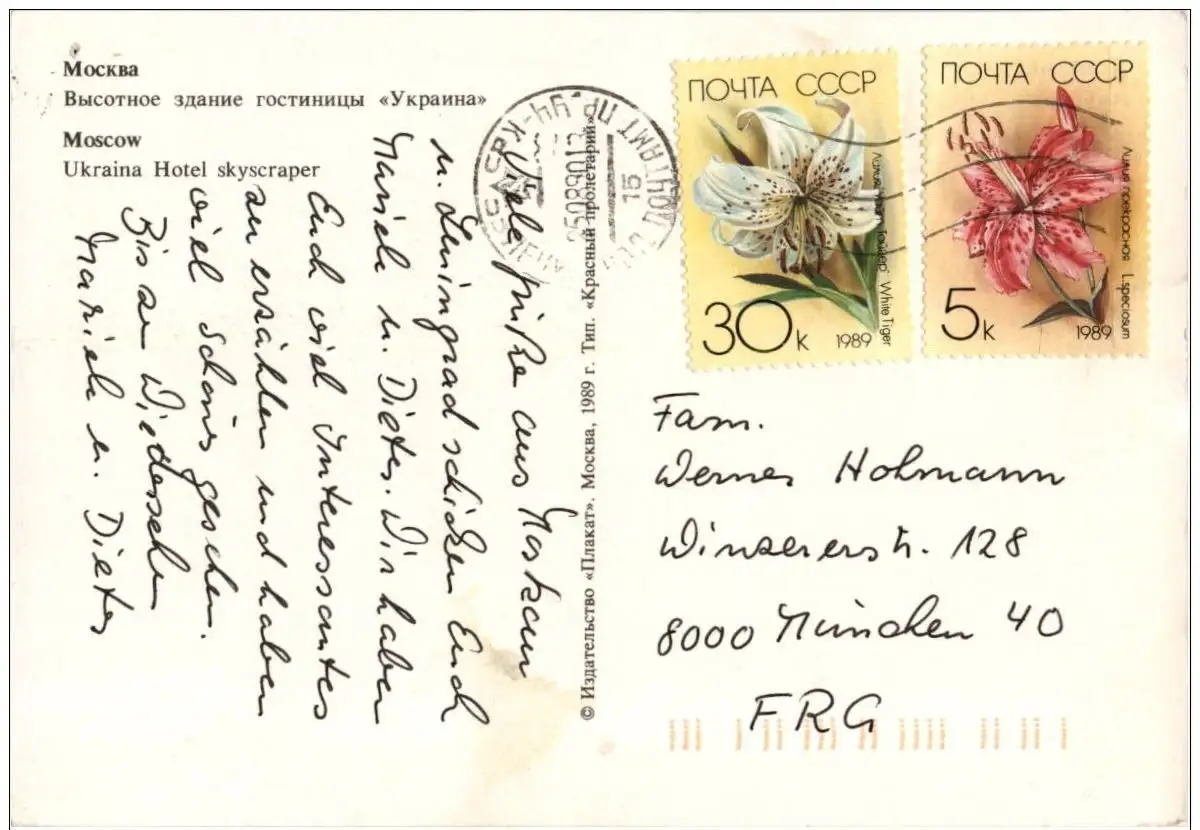 Москва
Высотное здание гостиницы «Украина»
Moscow
Ukraina Hotel skyscraper
Viele Grüße aus Moskau
u. Leningrad schicken Euch
Mariele u. Dieter. Wir haben
Euch viel Interessantes
zu erzählen und haben
viel Schönes gesehen.
Bis zum Wiedersehen
Mariele u. Dieter
© Издательство «Плакат». Москва, 1989 г. Тип. «Красный пролетарий»
ПОЧТА СССР
Лилия Уайт Тайгер White Tiger
30к 1989
ПОЧТА СССР
Лилия прекрасная L. speciosum
5к 1989
15
Fam.
Werner Hohmann
Winzererstr. 128
8000 München 40
FRG